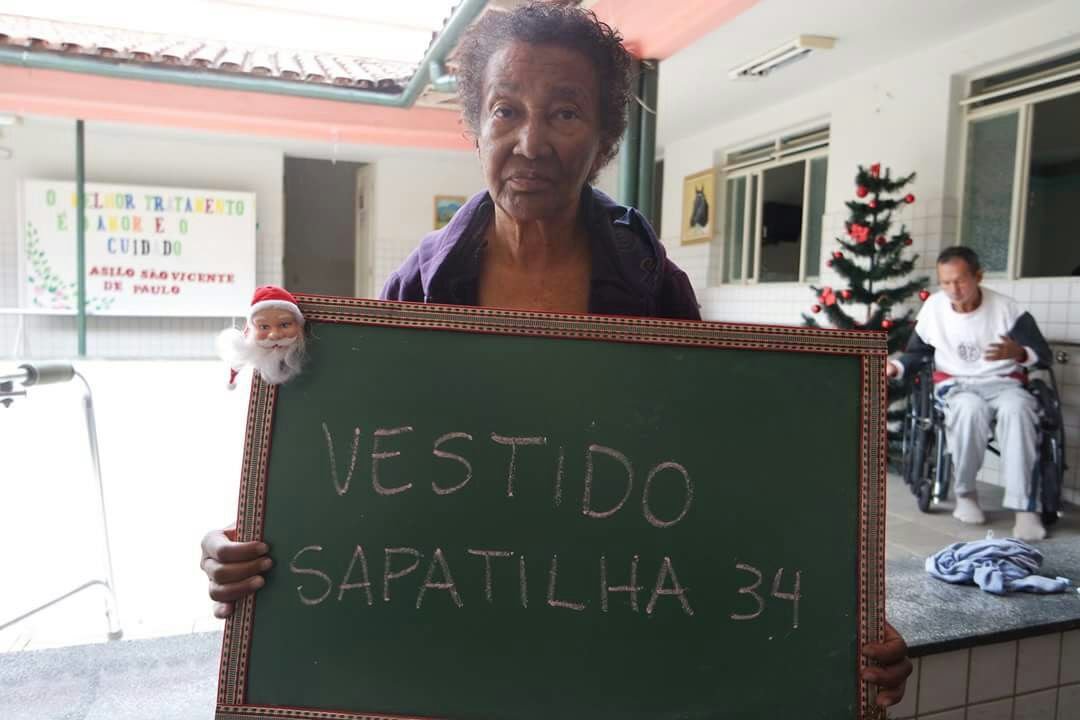 O MELHOR TRATAMENTO
É O AMOR E O
CUIDADO
ASILO SÃO VICENTE
DE PAULO
VESTIDO
SAPATILHA 34